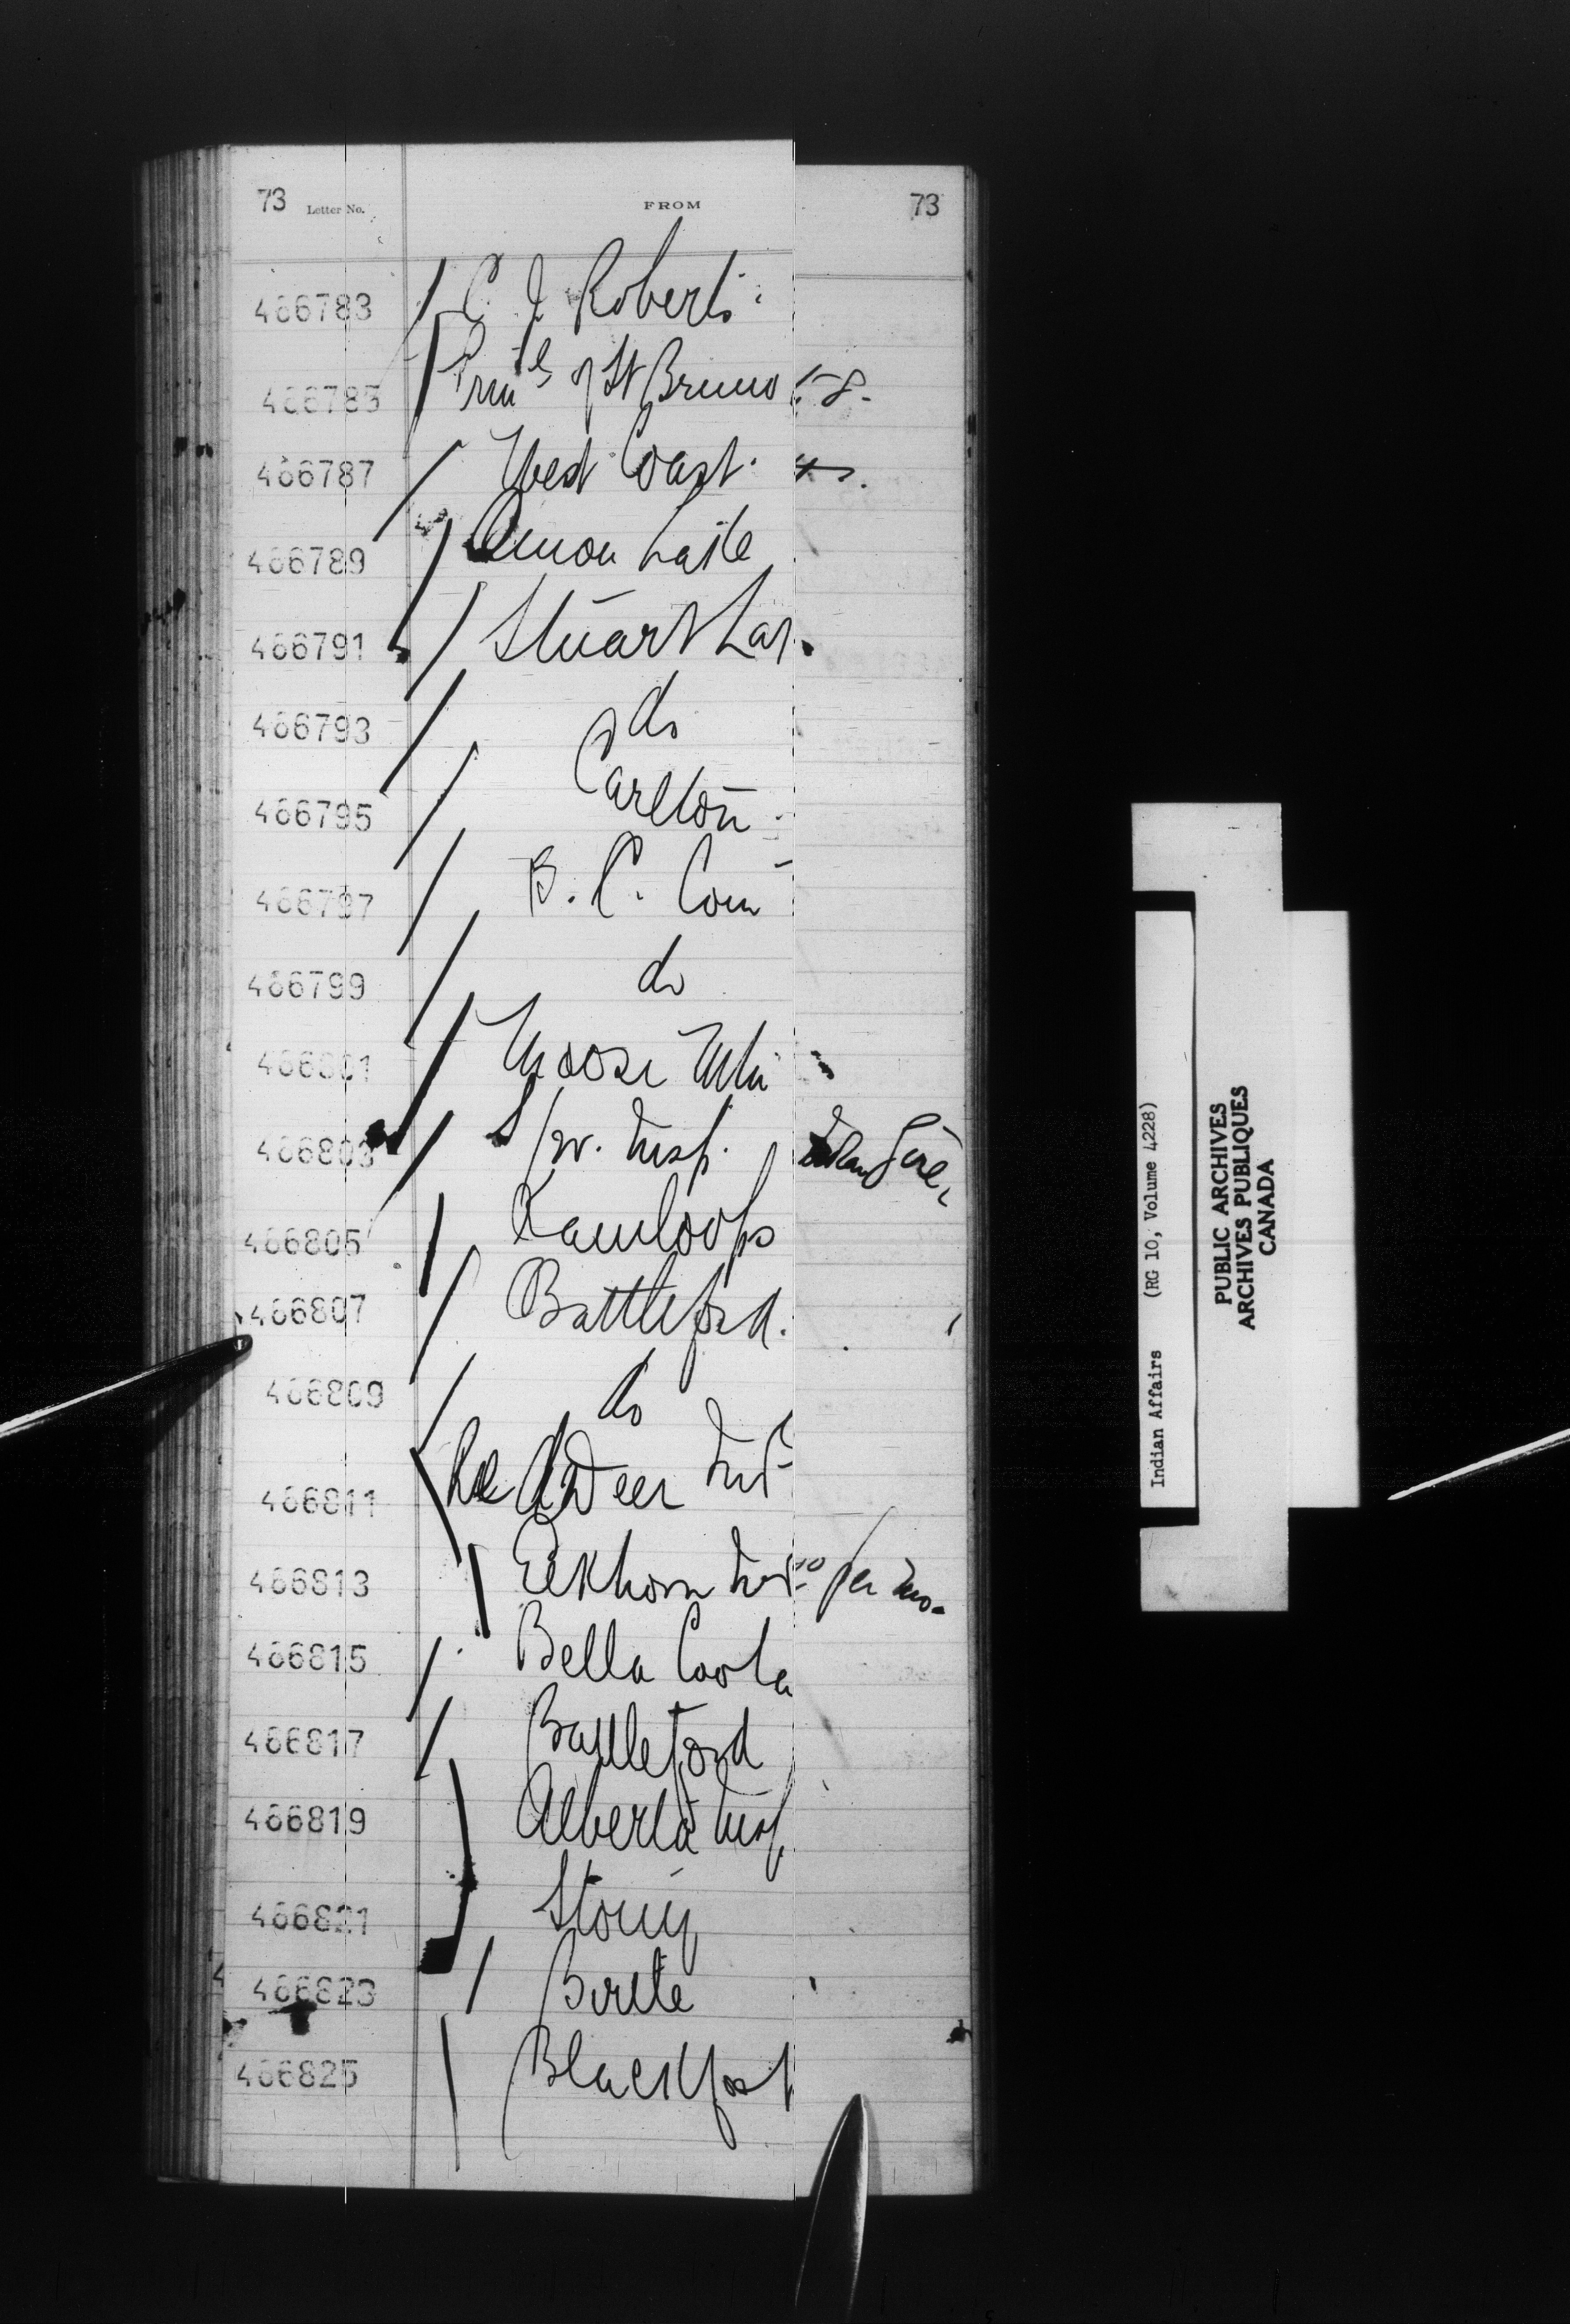 73 Letter No. FROM 73
466783 C. J. Roberts
466785 of St Bruno 58.
466787 West Coast
466789 Onion Lake
466791 Stuart La
466793 do
466795 Carlton
466797 B. C. Com
466799 do
466801 Moose Mtn
466803 S/w. Insp.
466805 Kamloops
466807 Battleford.
466809 do
466811 Red Deer Ind
466813 Elkhorn Ind per mo.
466815 Bella Coola
466817 Battleford
466819 Alberta Insp
466821 Stony
466823 Birtle
466825 Blackfoot
Indian Affairs (RG 10, Volume 4228)
PUBLIC ARCHIVES
ARCHIVES PUBLIQUES
CANADA